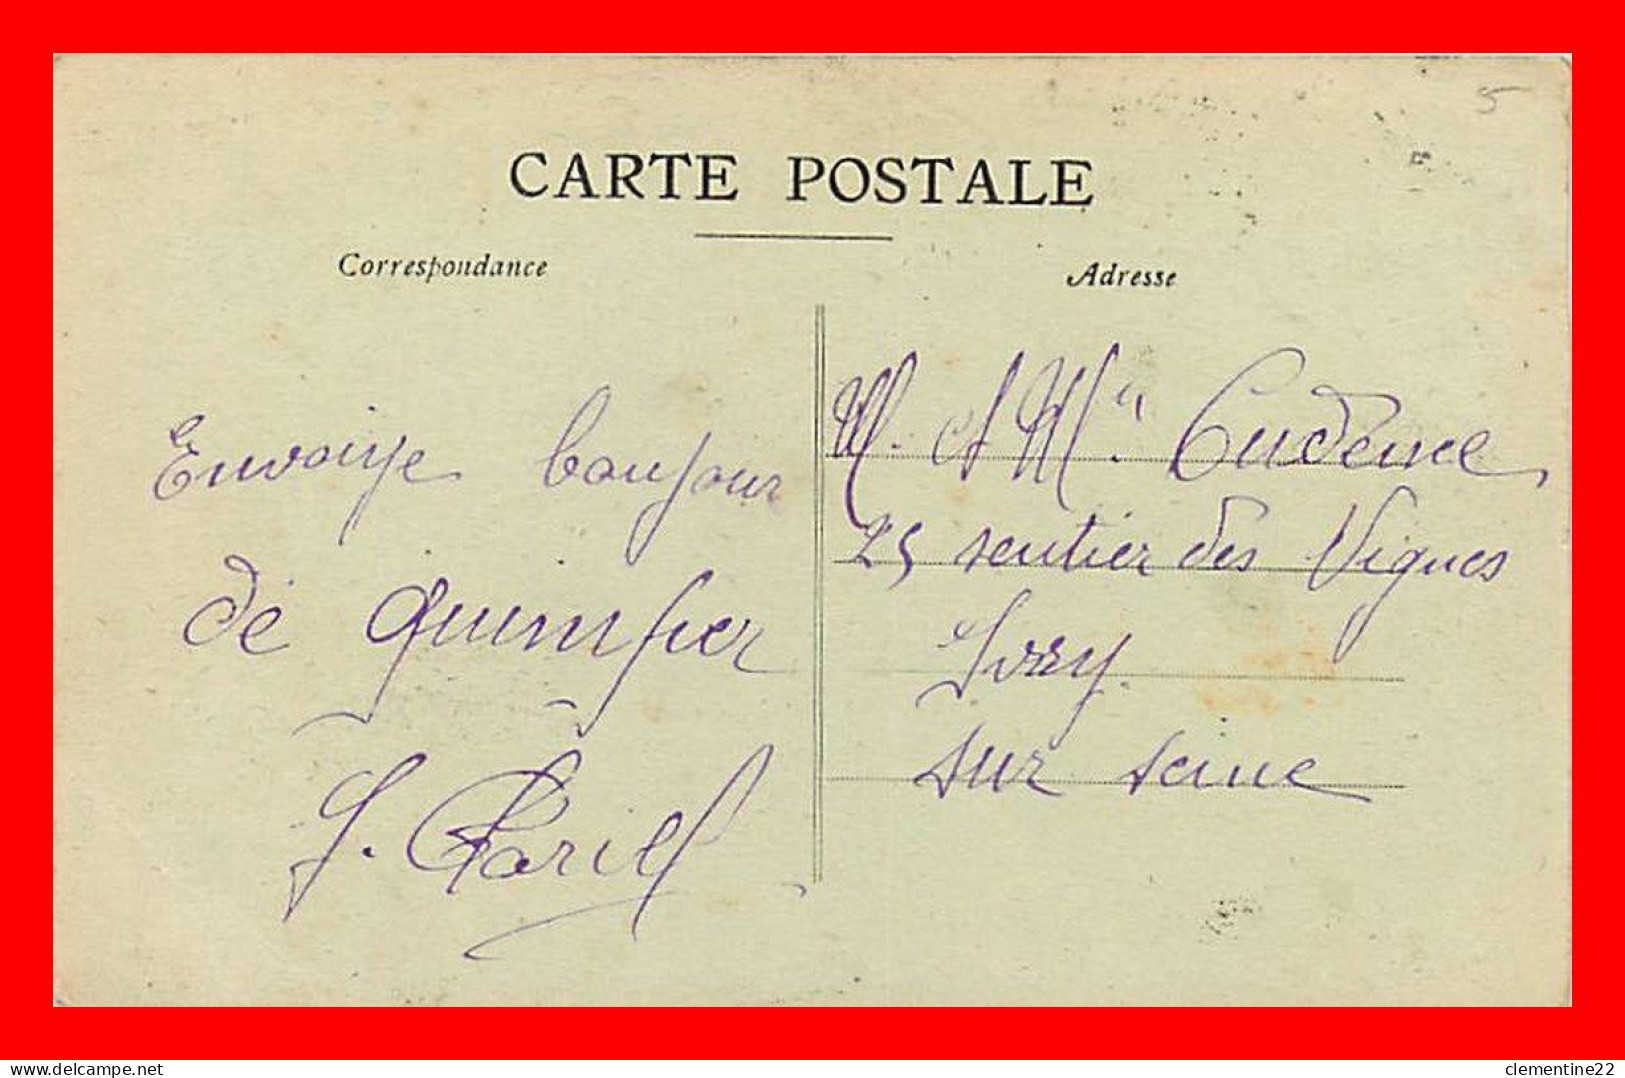 5
CARTE POSTALE
Correspondance
Adresse
Envoiye bonjour
de Quimper
M. et Me Cudenec
25 sentier des Vignes
Ivry
sur seine
www.delcampe.net
clementine22